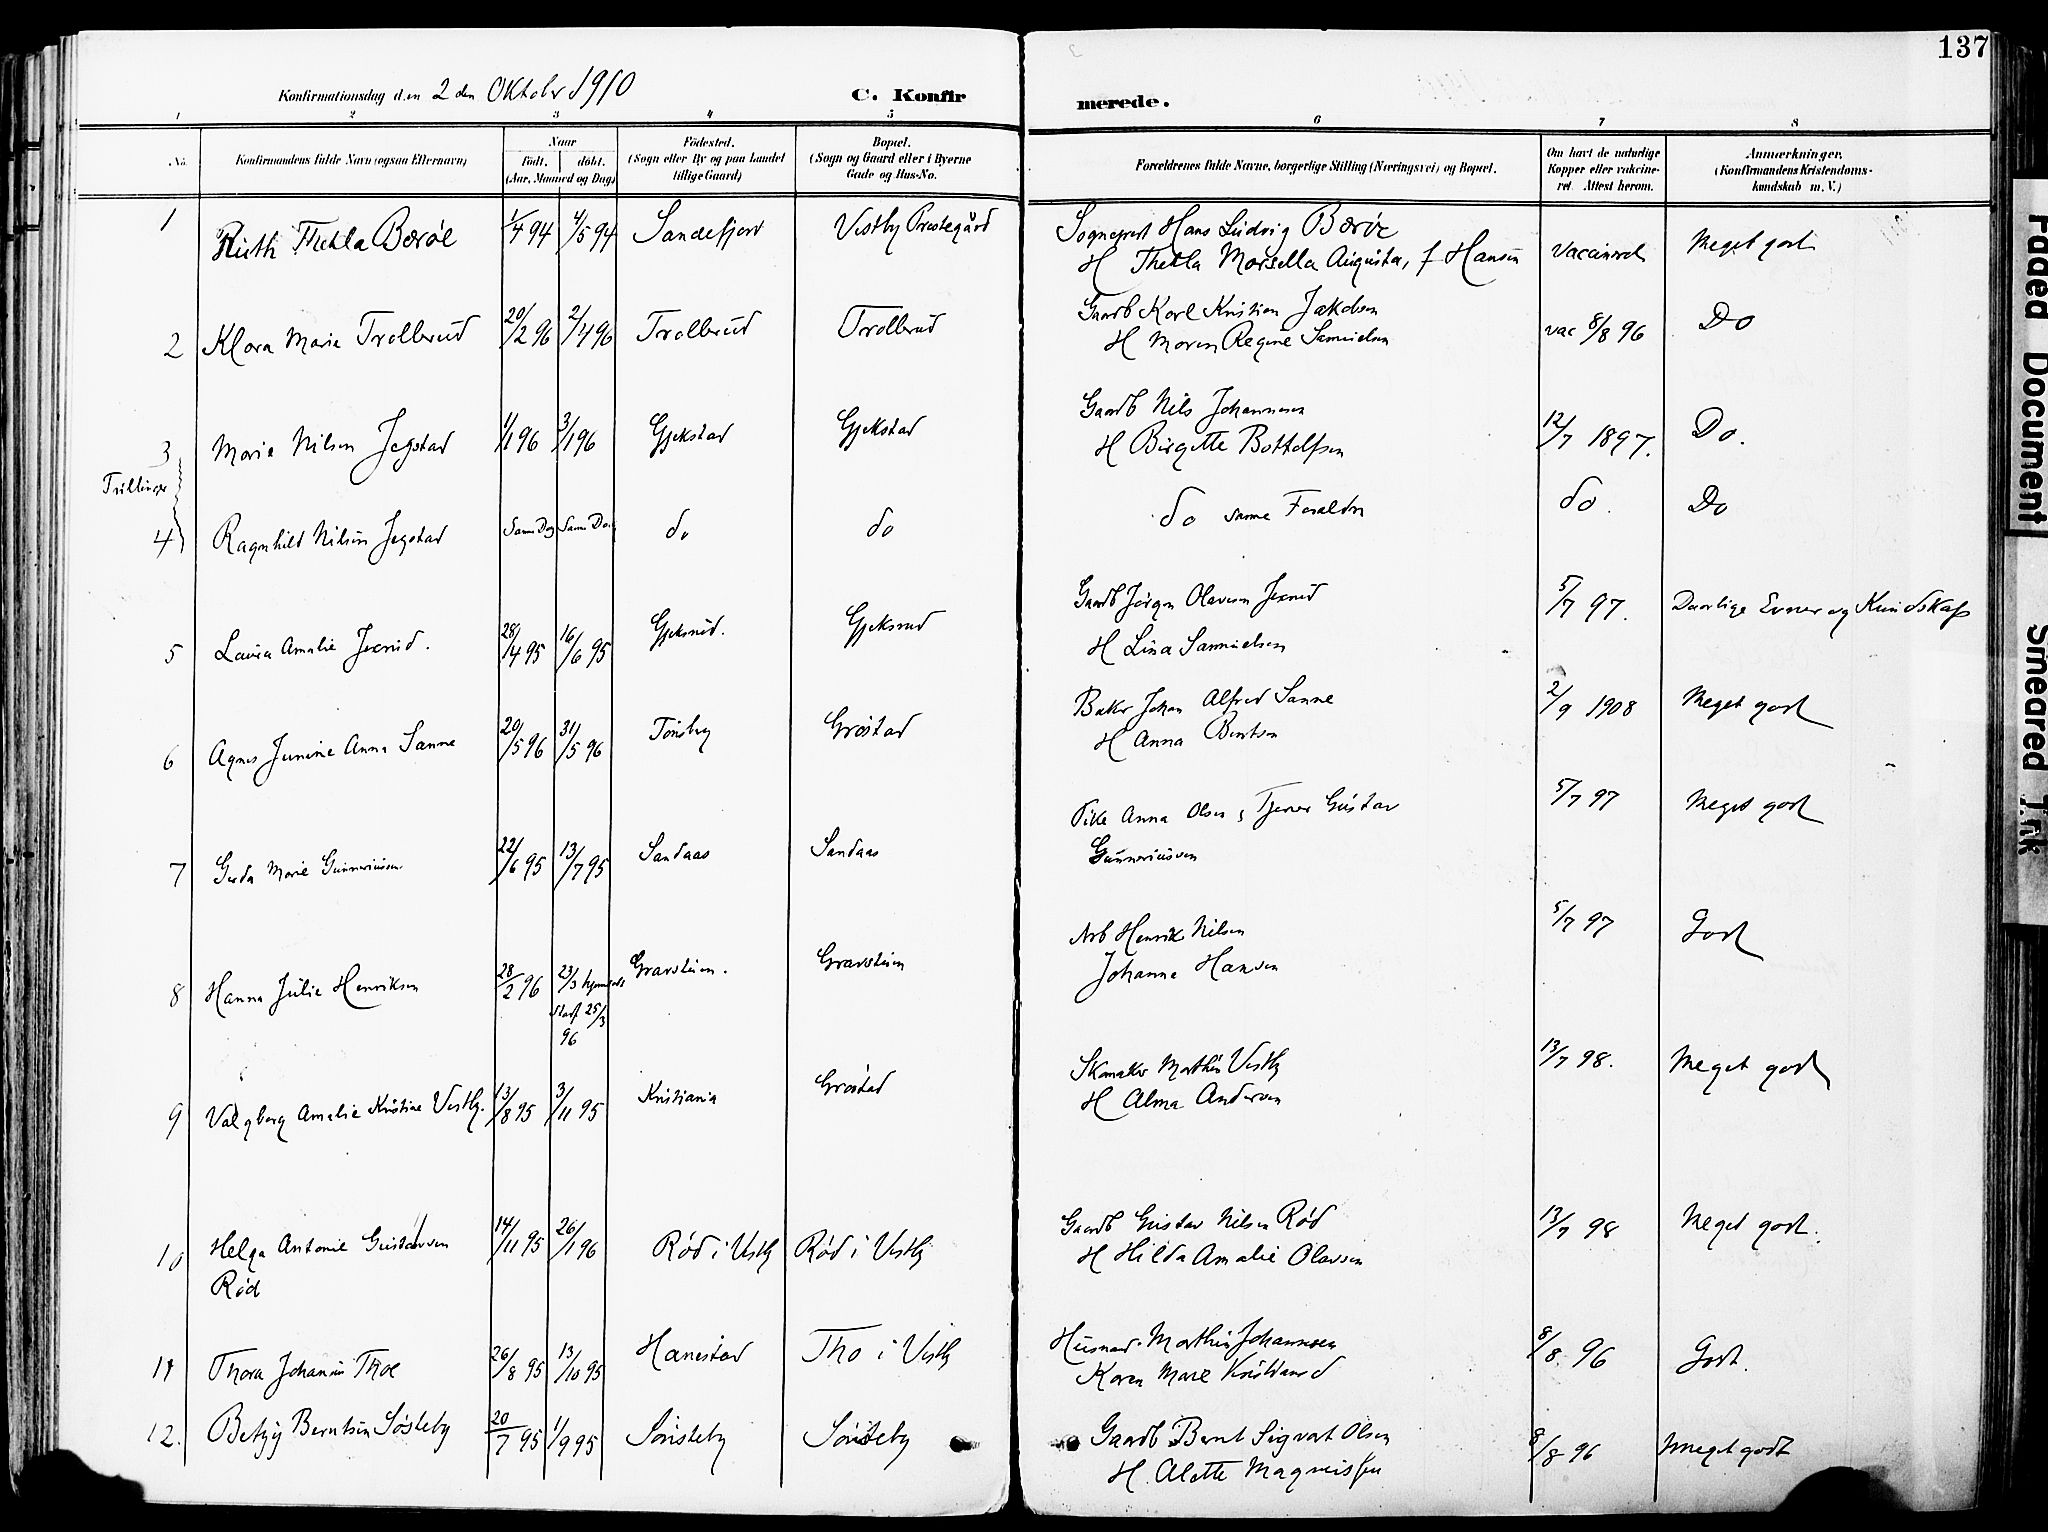 137
Konfirmationsdag den 2 den Oktober 1910
C. Konfirmerede.
1 2 3 4 5 6 7 8
No. Konfirmandens fulde Navn (ogsaa Efternavn)
Naar født. døbt. (Aar, Maaned og Dag)
Fødested. (Sogn eller By og paa Landet tillige Gaard)
Bopæl. (Sogn og Gaard eller i Byerne Gade og Hus-No.
Forældrenes fulde Navne, borgerlige Stilling (Næringsvei) og Bopæl.
Om havt de naturlige Kopper eller vakcineret. Attest herom.
Anmærkninger. (Konfirmandens Kristendomskundskab m. V.)
1 Ruth Thekla Bærøe 1/4 94 4/5 94 Sandefjord Vestby Prestegård Sogneprest Hans Ludvig Bærøe vaccinered Meget godt
H Thekla Marsella Augusta, f Hansen
2 Klara Marie Trollerud 20/2 96 2/4 96 Trollerud Trollerud Gaardb Karl Kristian Jakobsen vac 8/8 96 Do
H Maren Regine Samuelsen
3 Marie Nilsen Jegstad 1/1 96 3/1 96 Gjekstad Gjekstad Gaardb Nils Johannesen 12/7 1897. Do.
H Birgitte Bottolfsen
Tvillinger
4 Ragnhild Nilsen Jegstad Samme Dag Samme Dag do do do samme Forældre do. Do
5 Laura Amalie Jexrud. 28/4 95 16/6 95 Gjeksrud. Gjeksrud Gaardb Jørgen Olavesen Jexrud 5/7 97. Daarlige Evner og Kundskap
H Lina Samuelsen
6 Agnes Junine Anna Sanne 20/5 96 31/5 96 Tønsberg Grøstad Baker Johan Alfred Sanne 2/9 1908 Meget godt
H Anna Berntsen
7 Gerda Marie Gunneriussen. 22/6 95 13/7 95 Sandaas Sandaas Pike Anna Olsen & Tjener Gustav 5/7 97 Meget godt
Gunneriussen
8 Hanna Julie Henriksen 28/2 96 23/3 hjemmedt Gravsteien. Gravsteien Arb Henrik Nilsen 5/7 97 Godt
stadf 25/3 96
Johanne Hansen
9 Valgberg Amalie Kristine Vestby. 13/8 95 3/11 95 Kristiania Grøstad Skomaker Marthin Vestby 13/7 98. Meget godt
H Alma Andersen
10 Helga Antonie Gustavsen 14/11 95 26/1 96 Rød i Vestby Rød i Vestby Gaardb Gustav Nilsen Rød 13/7 98 Meget godt.
Rød
H Hilda Amalie Olavsen
11 Thora Johanne Thoe 26/8 95 13/10 95 Hanestad Tho i Vestby Husmd. Marthin Johannesen 8/8. 96 Godt.
Karen Marie
12. Betzy Berntsen Søsteby 20/7 95 1/9 95 Sønsteby Sønsteby Gaardb Bernt Sigvart Olsen 8/8 96 meget godt
H. Alette Magnussen
Faded Document
Smeared Ink